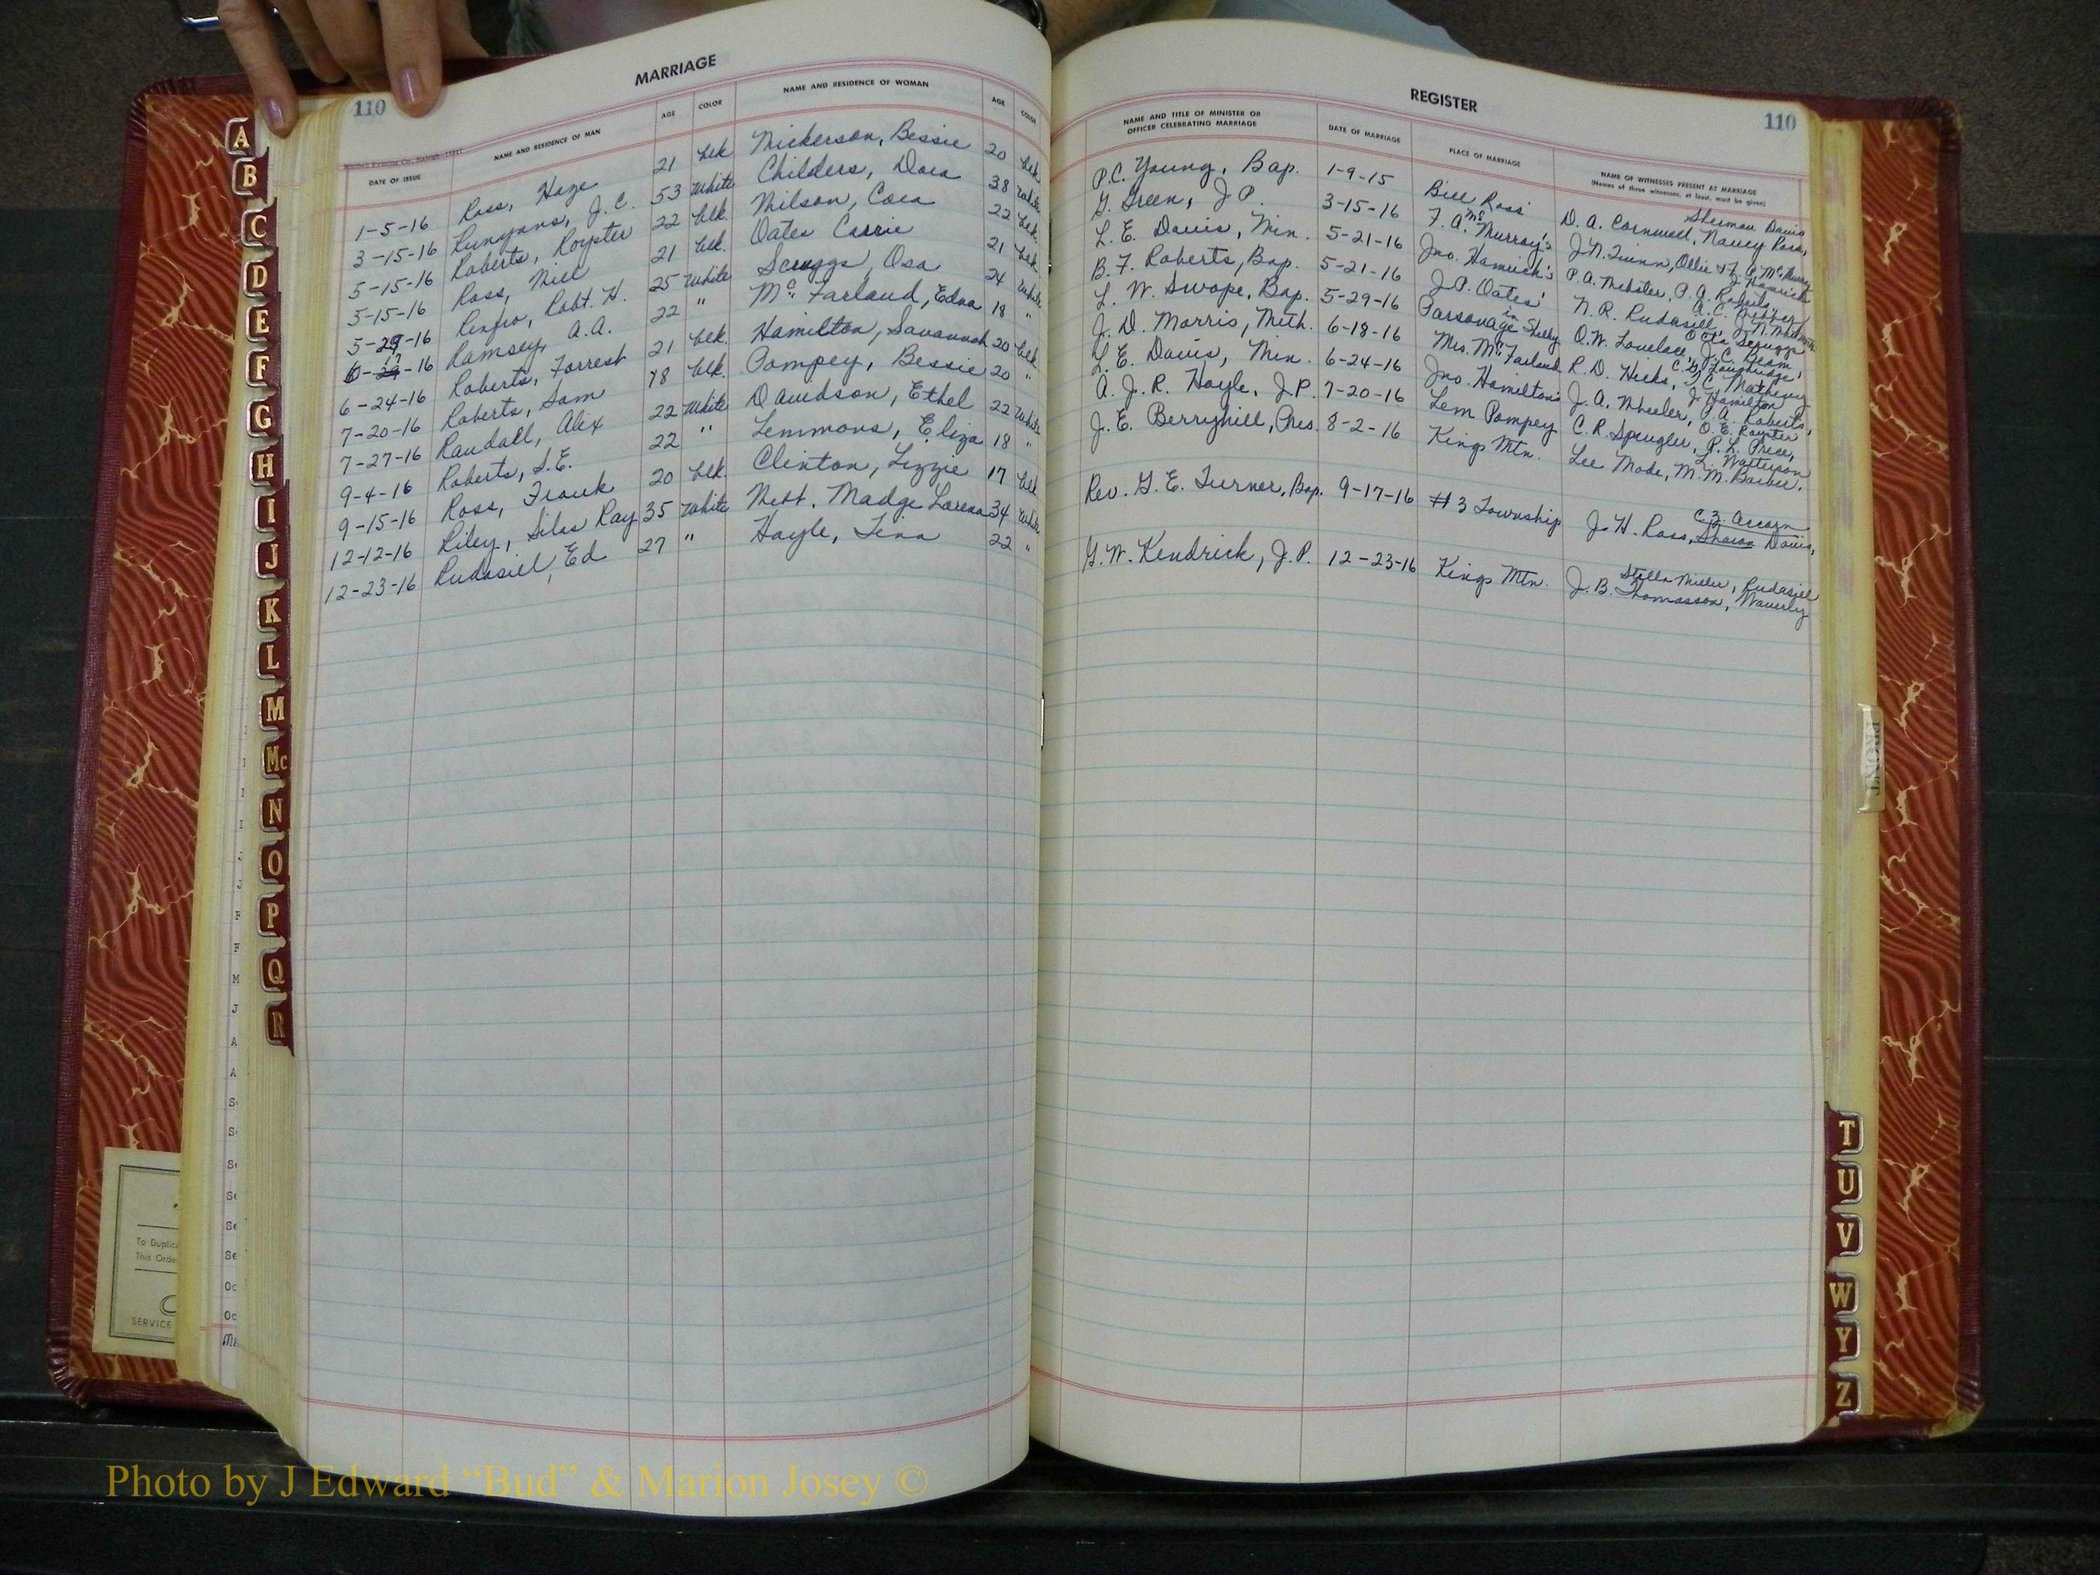 110
MARRIAGE
DATE OF ISSUE NAME AND RESIDENCE OF MAN AGE COLOR NAME AND RESIDENCE OF WOMAN AGE COLOR
1-5-16 Ross, Haze 21 blk Nickerson, Bessie 20 blk
3-15-16 Runyans, J. C. 53 White Childers, Dora 38 White
5-15-16 Roberts, Royster 22 blk. Wilson, Cora 22 blk.
5-15-16 Ross, Will 21 blk. Oates Carrie 21 blk
5-29-16 Renfro, Robt. H. 25 White Scruggs, Osa 24 White
16 Ramsey, A. A. 22 " McFarland, Edna 18 "
6-24-16 Roberts, Forrest 21 blk. Hamilton, Savannah 20 blk.
7-20-16 Roberts, Sam 18 blk. Pompey, Bessie 20 "
7-27-16 Randall, Alex 22 White Davidson, Ethel 22 White
9-4-16 Roberts, S. E. 22 " Lemmons, Eliza 18 "
9-15-16 Ross, Frank 20 blk. Clinton, Lizzie 17 blk.
12-12-16 Riley, Silas Ray 35 White Nett. Madge Lorena 34 White
12-23-16 Rudasiel, Ed 27 " Hoyle, Tina 22 "
REGISTER
110
NAME AND TITLE OF MINISTER OR OFFICER CELEBRATING MARRIAGE DATE OF MARRIAGE PLACE OF MARRIAGE NAME OF WITNESSES PRESENT AT MARRIAGE
(Names of three witnesses, at least, must be given)
P. C. Young, Bap. 1-9-15 Bill Ross' Sherman Davis
D. A. Cornwell, Nancy Ross,
G. Green, J P. 3-15-16 F. A. McMurray's J. N. Quinn, Ollie & F. A. McMurry
L. E. Davis, Min. 5-21-16 Jno. Hamrick's P. A. Webster, P. A. Roberts, J. Hamrick
B. F. Roberts, Bap. 5-21-16 J. P. Oates' N. R. Rudasill,
L. W. Swope, Bap. 5-29-16 Parsonage in Shelby O. W. Lovelace, J. C. Beam,
J. D. Morris, Meth. 6-18-16 Mrs. McFarland R. D. Hicks, T. C. Matheny
L. E. Davis, Min. 6-24-16 Jno. Hamilton's J. A. Wheeler, P. A. Roberts, J. Hamilton
A. J. R. Hoyle, J. P. 7-20-16 Lem Pompey C. R. Spangler, P. L. Price,
J. E. Berryhill, Pres. 8-2-16 Kings Mtn. Lee Mode, M. M. Barber.
Rev. G. E. Turner, Bap. 9-17-16 #3 Township J. H. Ross, Davis,
G. W. Kendrick, J. P. 12-23-16 Kings Mtn. Stella Miller, Rudasiel
J. B. Thomasson, Waverly
A
B
C
D
E
F
G
H
I
J
K
L
M
Mc
N
O
P
Q
R
T
U
V
W
Y
Z
FRONT
To Duplic
This Orde
SERVICE
Photo by J Edward “Bud” & Marion Josey ©